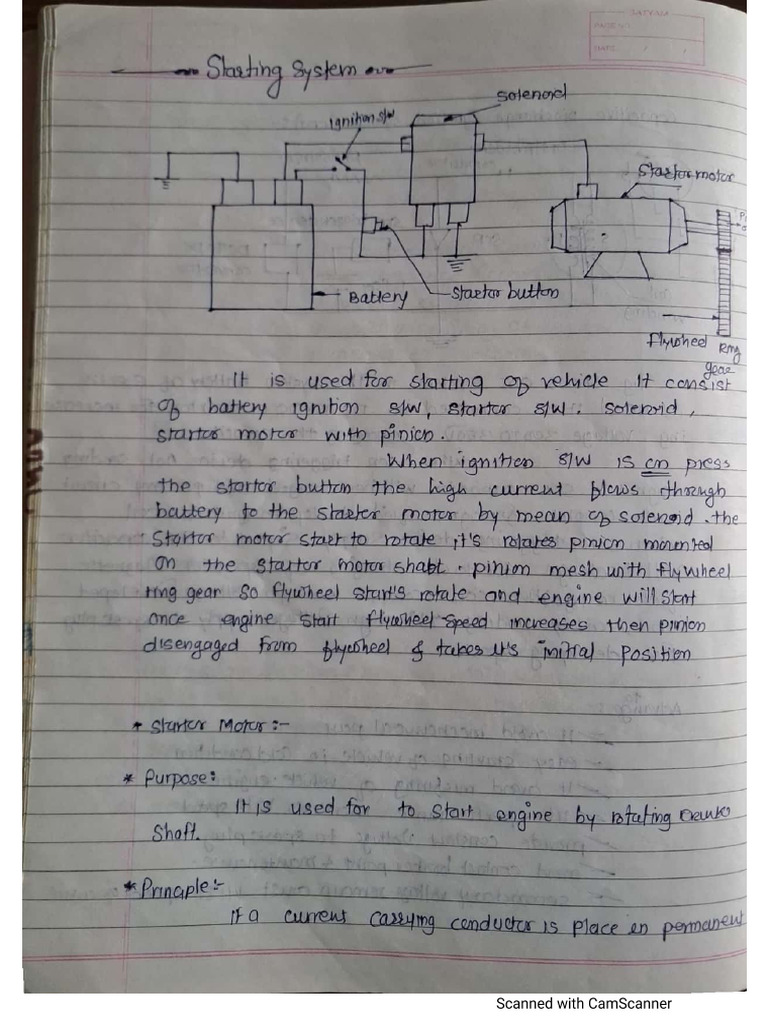 Starting System
Solenoid
ignition s/w
Startor motor
Battery
Startor button
flywheel Ring
gear
It is used for starting of vehicle It consist
of battery ignition s/w, startor s/w. solenoid,
startor motor with pinion.
When ignition s/w is on press
the startor button the high current blows through
battery to the startor motor by mean of solenoid. the
startor motor start to rotate it's rotates pinion mounted
on the startor motor shabt. pinion mesh with flywheel
ring gear so flywheel start's rotate and engine will start
once engine start flywheel speed increases then pinion
disengaged from flywheel & takes it's initial position
* Startor Motor:-
* Purpose:
It is used for to start engine by rotating crank
Shaft.
* Principle:-
If a current carrying conductor is place in permanent
Scanned with CamScanner